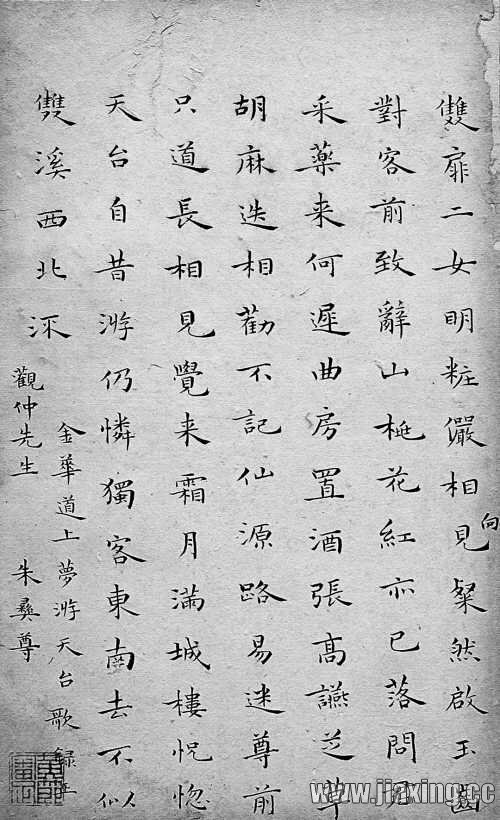 雙扉二女明粧儼相見粲然啟玉齒
向
對客前致辭山桃花紅亦已落問君
采藥来何遲曲房置酒張高讌芝草
胡麻迭相勸不記仙源路易迷尊前
只道長相見覺来霜月滿城樓怳惚
天台自昔游仍憐獨客東南去不似
雙溪西北流
金華道上夢游天台歌錄呈
觀仲先生 朱彝尊
www.jiaxing.cc